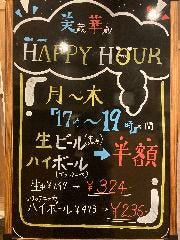 美 華
HAPPY HOUR
月〜木
『17時〜19時』の間
生ビール
ハイボール
半額
→ ¥324
ハイボール ¥473 → ¥236